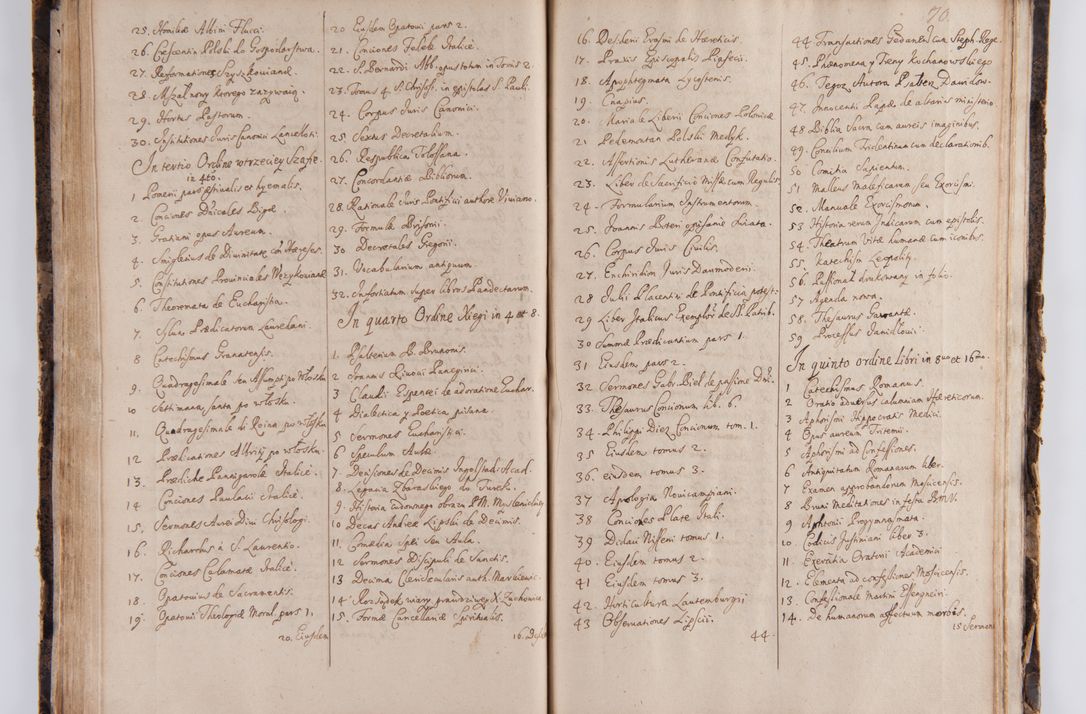 25. Homiliæ Albini Flacci.
26. Crescentin Polski do Gospodarstwa.
27. Reformationes Szyszkowianæ.
28. Mszał nowy ktorego zazywaią.
29. Hortus Pastorum.
30. Institutiones Juris Canonici Lancelloti.
In tertio Ordine w trzeciey Szafie
in 4to.
1 Pomerii pars æstivalis et hyemalis.
2. Conciones Dnicales Bigæ.
3. Gratiani opus Aureum.
4. Smiglecius de Divinitate con. Hæreses.
5. Constitutiones Provinciales Wężykowianæ
6. Theoremata de Eucharistia.
7. Sylva Prædicatorum Laurelani.
8 Catechismus Granatensis.
9. Quadragesimale seu Assumpti po Włosku
10 Settimana santa po włosku.
11. Quadragesimale di Roina po włosku
12 Prædicationes Albrizj po włosku.
13. Prediche Panigarolæ Italice.
14 Conciones Paulaci Italice.
15. Sermones Aurei Divi Chrisologi.
16. Richardus à S. Laurentio.
17. Conciones Calamatæ Italice.
18. Opatovius de Sacramentis.
19. Opatovii Theologiæ Moral. pars 1.
20. Eiusdem
20 Eiusdem Opatovii pars 2.
21. Conciones Fabelæ Italice.
22. S. Bernardi Abb. opus totum in Tomis 2.
23. Tomus 4. S. Chrisost. in epistolas S. Pauli.
24. Corpus Juris Canonici.
25. Sextus Decretalium.
26. Respublica Tolossana.
27. Concordantiæ Bibliorum.
28. Rationale Juris Pontificii authore Viviano.
29. Formulæ Brisonii.
30 Decretales Gregorii.
31. Vocabularium antiquum.
32. Infortiatum super libros Pandectarum.
In quarto Ordine Xięgi in 4 et 8.
1. Psalterium B. Brunonis.
2 Joannis Rivovii Panegirici.
3 Claudii Espencei de adoratione Euchar.
4 Dialectica y Poetica pisana
5 Sermones Eucharistici.
6 Speculum Aulæ.
7. Decisiones de Decimis Ingolstad. Acad.
8. Legacia Zbaraskiego do Turek.
9. Historia cudownego obrazu P. M. Myslenickiey
10 Decas Andreæ Lipski de Decimis.
11. Comædia Spei seu Aula.
12 Sermones Discipuli de Sanctis.
13 Decima Clericalis auth. Markiewic.
14 Rozsądek wiary prawdziwey X. Zuchowica
15. Formæ Cancellariæ Spiritualis.
16. Desid.
70.
16. Desiderii Erasmi de Hæreticis.
17. Praxis Episcopalis Piasecii.
18. Apophtegmata Lycostenis.
19. Cnapius.
20. Mariale Liberii Conciones Polonicæ
21 Pedemontan Polski Medyk.
22. Assertionis Lutheranæ Confutatio.
23. Liber de Sacrificio Missæ cum Regulis
24. Formularium Instrumentorum.
25. Joannis Boteri opisanie Swiata.
26. Corpus Juris Civilis.
27. Enchiridion Juris Daumoderii.
28 Julii Placentini de Pontificia potest:
29 Liber Italicus Exemplor. de SS. Patrib.
30 Summæ Prædicantium pars 1.
31 Eiusdem pars 2.
32 Sermones Gabr. Biel de passione Dni.
33. Thesaurus Concionum lib. 6.
34. Philippi Diez Concionum tom. 1.
35 Eiusdem tomus 2.
36. eiusdem tomus 3.
37 Apologia Novicampiani.
38 Conciones Plate Itali.
39 Didaci Nisseni tomus 1.
40. Eiusdem tomus 2.
41 Eiusdem tomus 3.
42. Horticultura Lautembergii
43 Observationes Lipscii.
44.
44 Transactiones Gedanens. cum Steph. Rege.
45. Phænomena y Treny Kochanowskiego
46. Tegoz Autora Psalterz Dawidow.
47. Innocentii Papæ de altaris ministerio.
48 Biblia Sacra cum aureis imaginibus.
49. Concilium Tridentinum cum declarationib.
50 Comitia Sapientum.
51 Malleus Maleficarum seu Exorcismi.
52. Manuale Exorcismorum.
53 Historia rerum Indicarum cum epistolis.
54. Theatrum Vitæ humanæ cum iconibus.
55 Katechism Legnolity.
56. Passional drukowany in folio.
57 Agenda nova.
58. Thesaurus
59 Processus
In quinto ordine libri in 8vo et 16mo.
1 Catechismus Romanus.
2 Oratio adversus calumniam Hæreticorum.
3 Aphorismi Hippocratis Medici.
4 Opus aureum Tritemii.
5 Aphorismi ad Confessiones.
6 Antiquitatum Romanarum liber.
7 Examen approbandorum
8 Bruni Meditationes in festa B.M.V.
9 Aphtonii Progymnasmata.
10. Codicis Justiniani liber 3.
11 Exercitia Oratorii Academici
12. Elementa ad confessiones
13. Confessionale Martini Espengneiri
14. De humanorum affectuum morbis.
15 Sermon